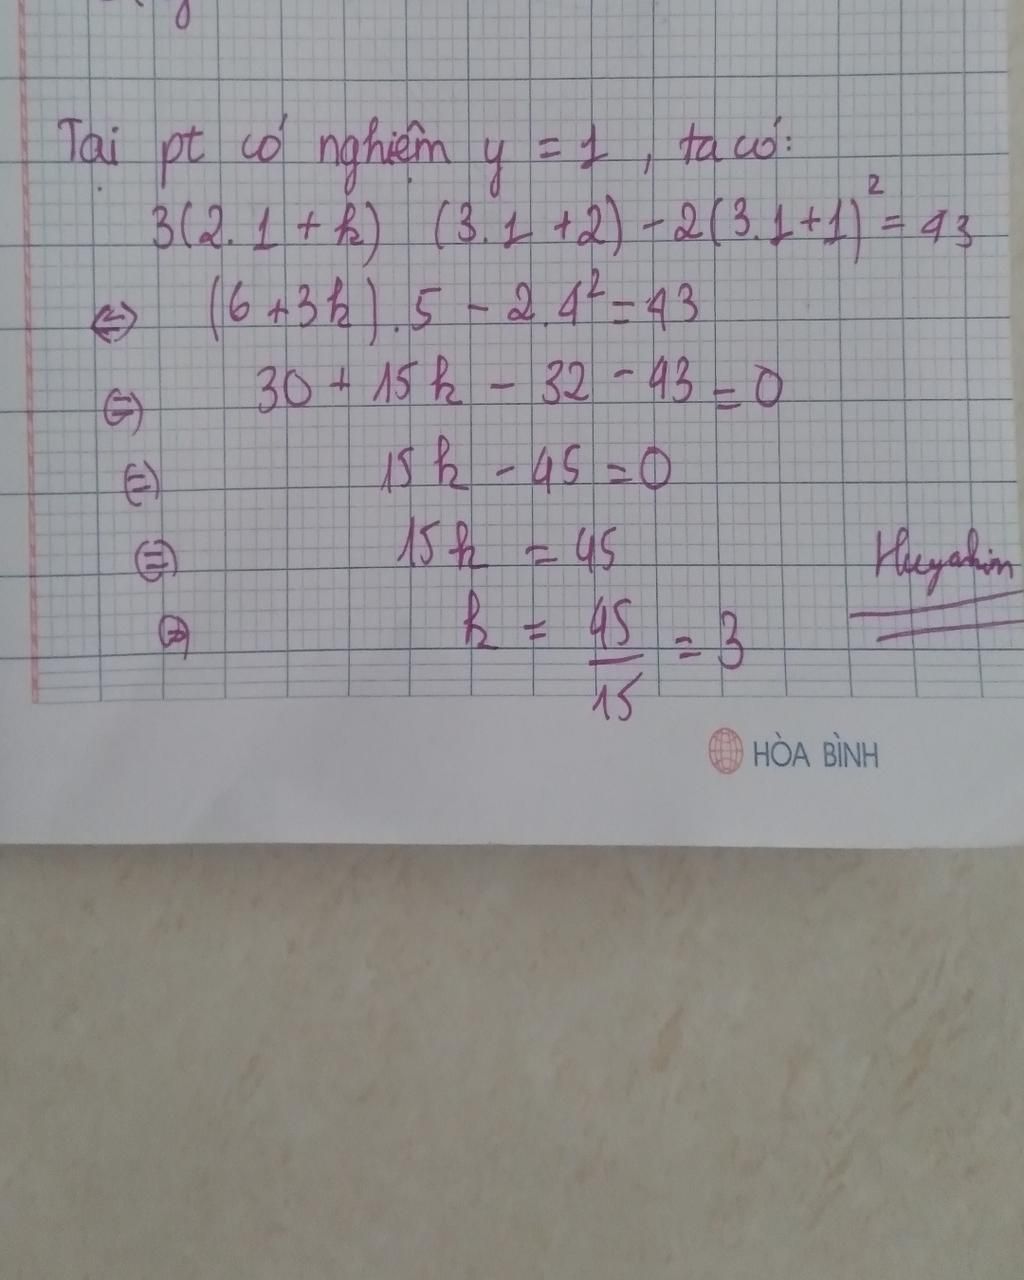 Tại pt có nghiệm y = 1, ta có:
3(2.1 + k) (3.1 + 2) - 2(3.1 + 1)² = 43
⇔ (6 + 3k).5 - 2.4² = 43
⇔ 30 + 15k - 32 - 43 = 0
⇔ 15k - 45 = 0
⇔ 15k = 45
⇔ k = 45/15 = 3
HÒA BÌNH